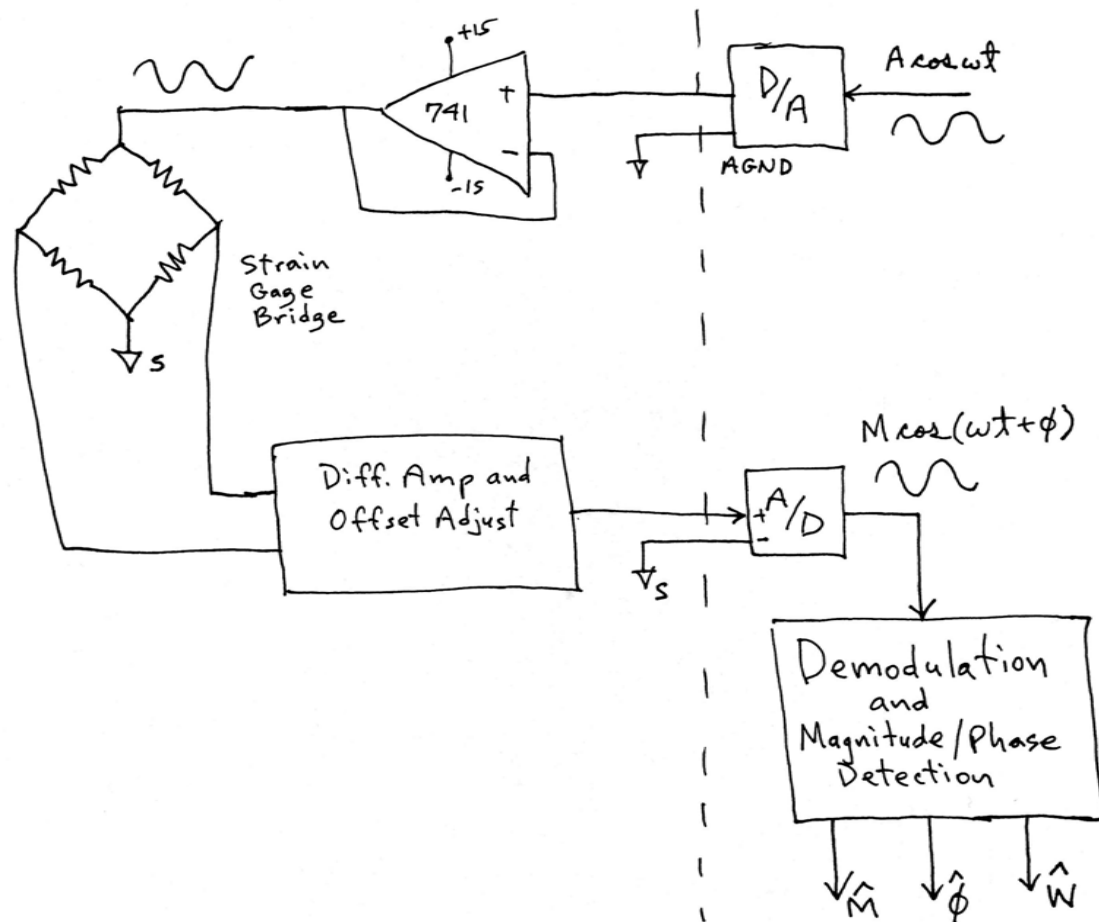 +15
741
+
-
-15
D/A
AGND
A cos ωt
Strain
Gage
Bridge
S
Diff. Amp and
Offset Adjust
M cos(ωt+ϕ)
+
-
A/D
S
Demodulation
and
Magnitude/Phase
Detection
M̂
ϕ̂
Ŵ